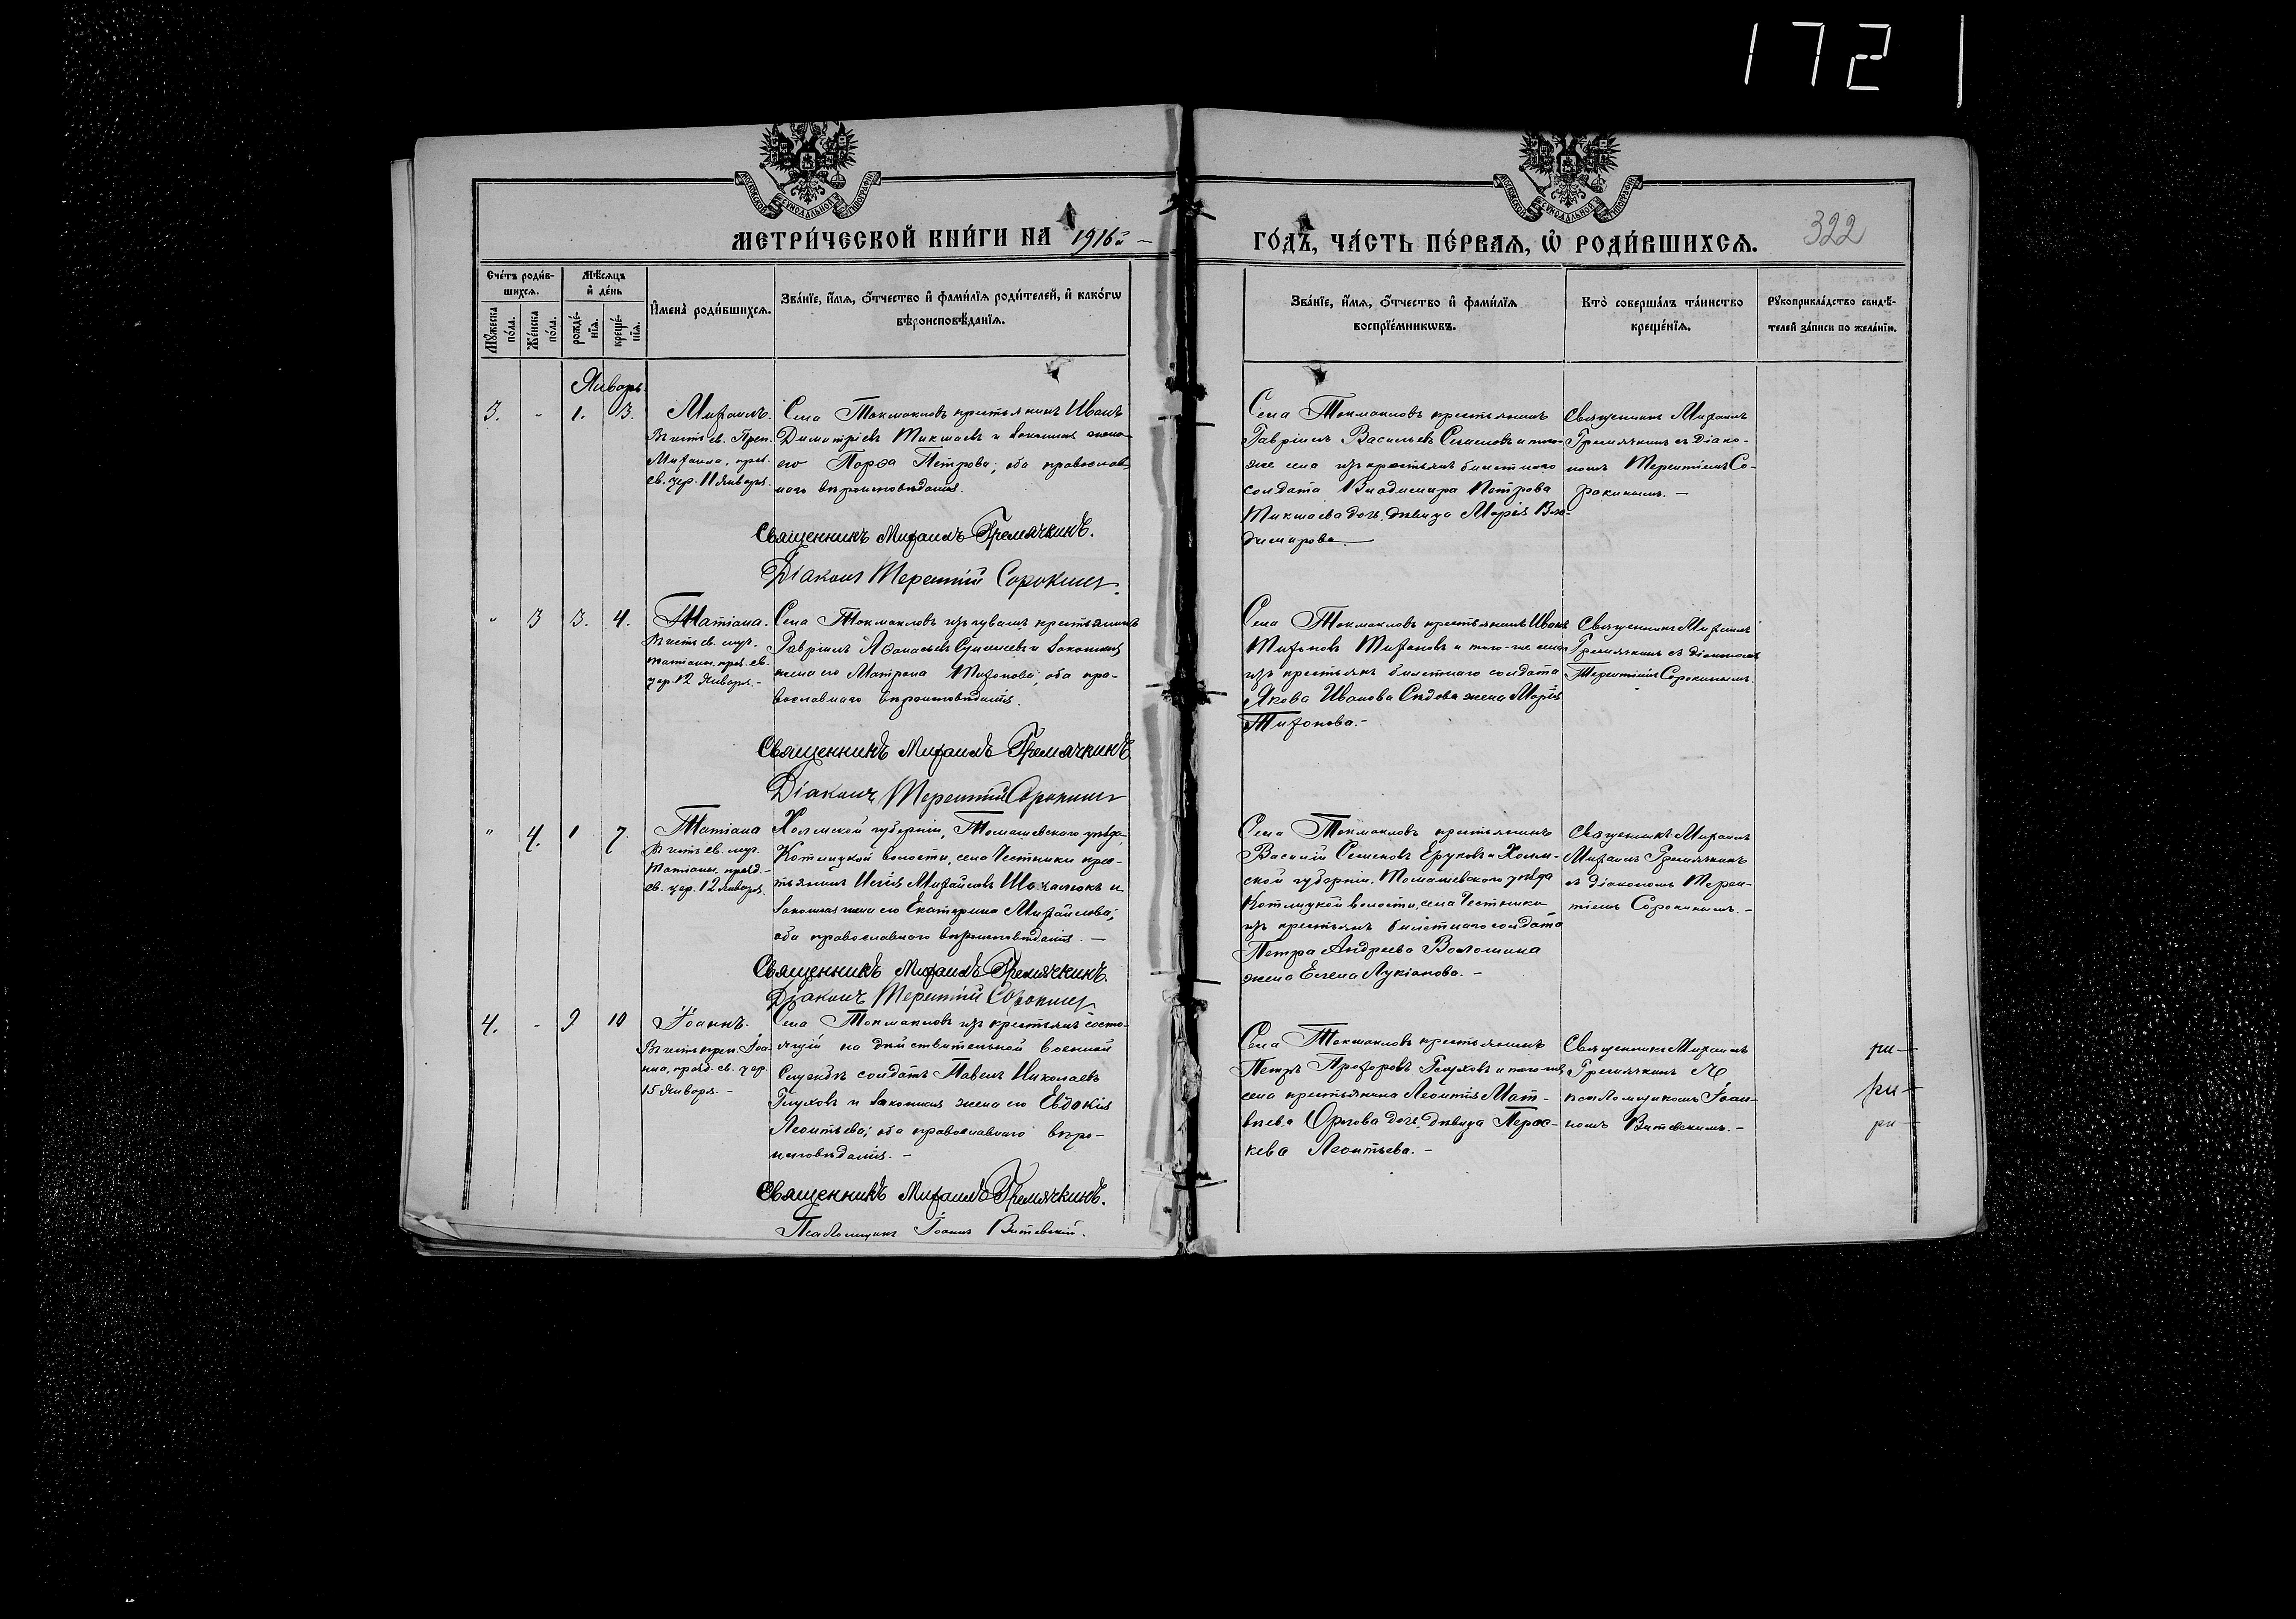 1721
МОСКОВСКОЙ СѴНОДАЛЬНОЙ ТИПОГРАФІИ
МОСКОВСКОЙ СѴНОДАЛЬНОЙ ТИПОГРАФІИ
МЕТРИ́ЧЕСКОЙ КНИ́ГИ НА 1916й
ГО́ДЪ, ЧА́СТЬ ПЕ́РВАѦ, Ѡ҆ РОДИ́ВШИХСѦ.
322
Сче́тъ роди́в-
шихсѧ.
Мꙋ́жеска по́ла.
Же́нска по́ла.
Мѣ́сѧцъ
и҆ де́нь
рожде́-
нїѧ.
креще́-
нїѧ.
И҆мена̀ роди́вшихсѧ.
Зва́нїе, и҆́мѧ, ѻ҆́тчество и҆ фами́лїѧ роди́телей, и҆ како́гѡ
вѣроисповѣ́данїѧ.
Зва́нїе, и҆́мѧ, ѻ҆́тчество и҆ фами́лїѧ
воспрїе́мникѡвъ.
Кто̀ соверша́лъ та́инство
креще́нїѧ.
Рꙋкоприкла́дство свидѣ́-
телей за́писи по жела́нїю.
Январь.
3. - 1. 3.
Михаилъ.
Въ честь св. Преп.
Михаила, праз.
св. цер. 11 Января.
Села Токмаклов крестьянинъ Иванъ
Димитріевъ Микшаевъ и законная жена
его Петрова; оба православ-
наго вѣроисповѣданія.
Священникъ Михаилъ Гремячкинъ.
Діаконъ Терентій Сорокинъ.
Села Токмаклов крестьянинъ
Гавріилъ Васильевъ Семеновъ и того-
же села изъ крестьянъ билетнаго
солдата Владимира Петрова
Микшаева дочь, дѣвица Марія Вла-
димирова.
Священникъ Михаилъ
Гремячкинъ съ Діако-
номъ Терентіемъ Со-
рокинымъ. -
" 3 3. 4.
Татіана.
Въ честь св. муч.
Татіаны, праз. св.
цер. 12 Января. -
Села Токмаклов изъ чувашъ крестьянинъ
Гавріилъ Аѳанасьевъ и законная
жена его Матрона Тихонова; оба пра-
вославнаго вѣроисповѣданія.
Священникъ Михаилъ Гремячкинъ.
Діаконъ Терентій Сорокинъ
Села Токмаклов крестьянинъ Иванъ
Тихоновъ Тихоновъ и того-же села
изъ крестьянъ билетнаго солдата
Якова Иванова Сѣдова жена Марія
Тихонова. -
Священникъ Михаилъ
Гремячкинъ съ діакономъ
Терентіемъ Сорокинымъ.
" 4. 1 7.
Татіана
Въ честь св. муч.
Татіаны, празд.
св. цер. 12 Января.
Холмской губерніи, Томашевскаго уѣзда,
Котлицкой волости, села Честники крес-
тьянинъ Михайловъ и
законная жена его Екатерина Михайлова;
оба православнаго вѣроисповѣданія. -
Священникъ Михаилъ Гремячкинъ.
Діаконъ Терентій Сорокинъ
Села Токмаклов крестьянинъ
Василій Семеновъ Еруковъ и Холм-
ской губерніи, Томашевскаго уѣзда
Котлицкой волости, села Честники
изъ крестьянъ билетнаго солдата
Петра Андреева Волошина
жена Елена Лукіанова. -
Священникъ Михаилъ
Михаилъ Гремячкинъ
съ діакономъ Терен-
тіемъ Сорокинымъ. -
4. - 9 10
Іоаннъ.
Въ честь преп. Іоан-
на, празд. св. цер.
15 Января. -
Села Токмаклов изъ крестьянъ состо-
ящій на дѣйствительной военной
службѣ солдатъ Павелъ Николаевъ
Глуховъ и законная жена его Евдокія
Леонтьева; оба православнаго вѣро-
исповѣданія. -
Священникъ Михаилъ Гремячкинъ.
Псаломщикъ Іоаннъ Витевскій.
Села Токмаклов крестьянинъ
Петръ Прохоровъ Глуховъ и того-же
села крестьянина Леонтія Мат-
вѣева Орлова дочь, дѣвица Парас-
кева Леонтьева. -
Священникъ Михаилъ
Гремячкинъ съ
псаломщикомъ Іоан-
номъ Витевскимъ. -